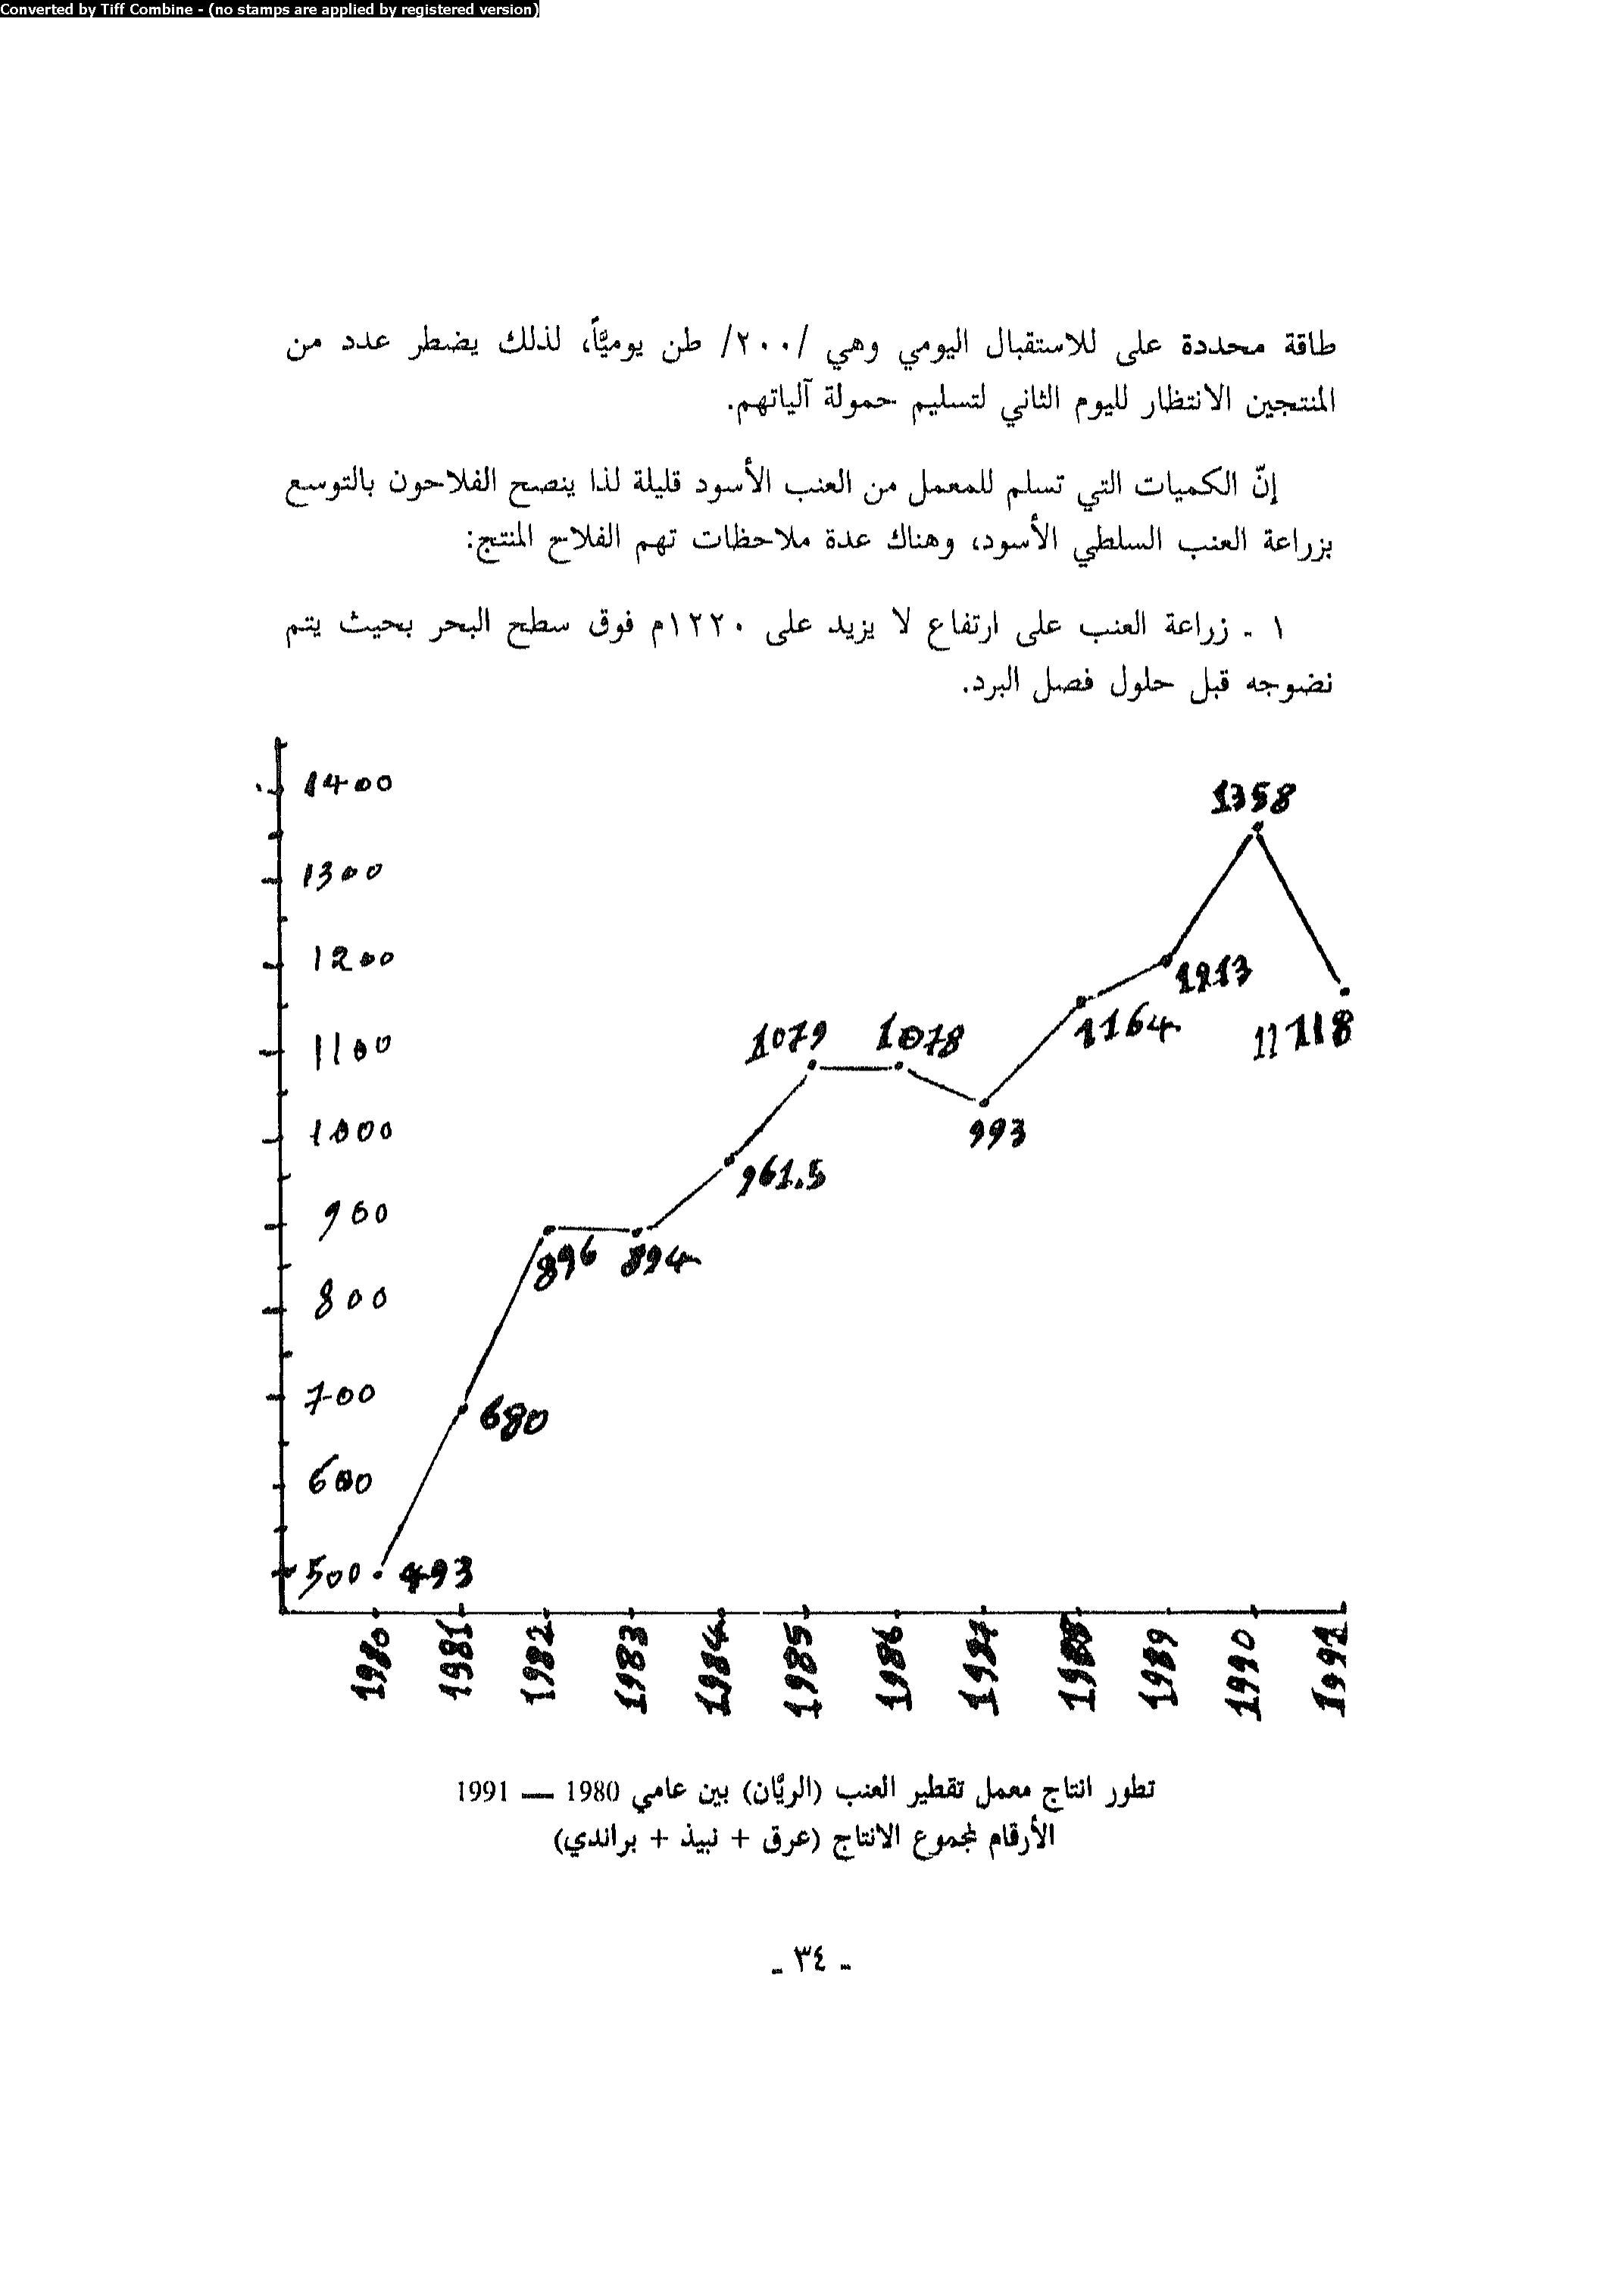 Converted by Tiff Combine - (no stamps are applied by registered version)
طاقة محددة على للاستقبال اليومي وهي /٢٠٠/ طن يوميَّاً، لذلك يضطر عدد من
المنتجين الانتظار لليوم الثاني لتسليم حمولة آلياتهم.
إنّ الكميات التي تسلم للمعمل من العنب الأسود قليلة لذا ينصح الفلاحون بالتوسع
بزراعة العنب السلطي الأسود، وهناك عدة ملاحظات تهم الفلاح المنتج:
١ - زراعة العنب على ارتفاع لا يزيد على ١٢٢٠م فوق سطح البحر بحيث يتم
نضوجه قبل حلول فصل البرد.
1400
1300
1200
1100
1000
900
800
700
600
500
493
680
896
894
961.5
1079
1078
993
1164
1213
1358
11118
1980
1981
1982
1983
1984
1985
1986
1987
1988
1989
1990
1991
تطور انتاج معمل تقطير العنب (الريَّان) بين عامي 1980 — 1991
الأرقام لمجموع الانتاج (عرق + نبيذ + براندي)
- ٣٤ -